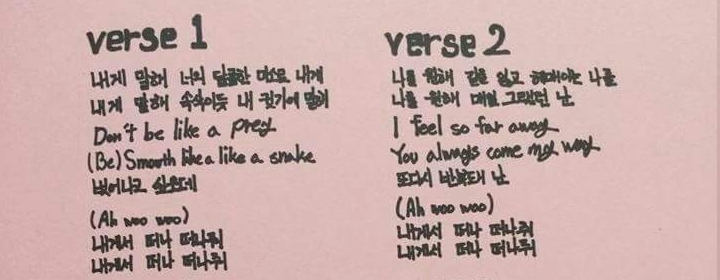 verse 1
내게 말해 너의 달콤한 미소로 내게
내게 말해 속삭이듯 내 귓가에 말해
Don't be like a prey
(Be) Smooth like a like a snake
벗어나고 싶은데
(Ah woo woo)
내게서 떠나 떠나줘
내게서 떠나 떠나줘
verse 2
나를 원해 길을 잃고 헤매이는 나를
나를 원해 매일 그랬던 난
I feel so far away
You always come my way
또다시 반복돼 난
(Ah woo woo)
내게서 떠나 떠나줘
내게서 떠나 떠나줘